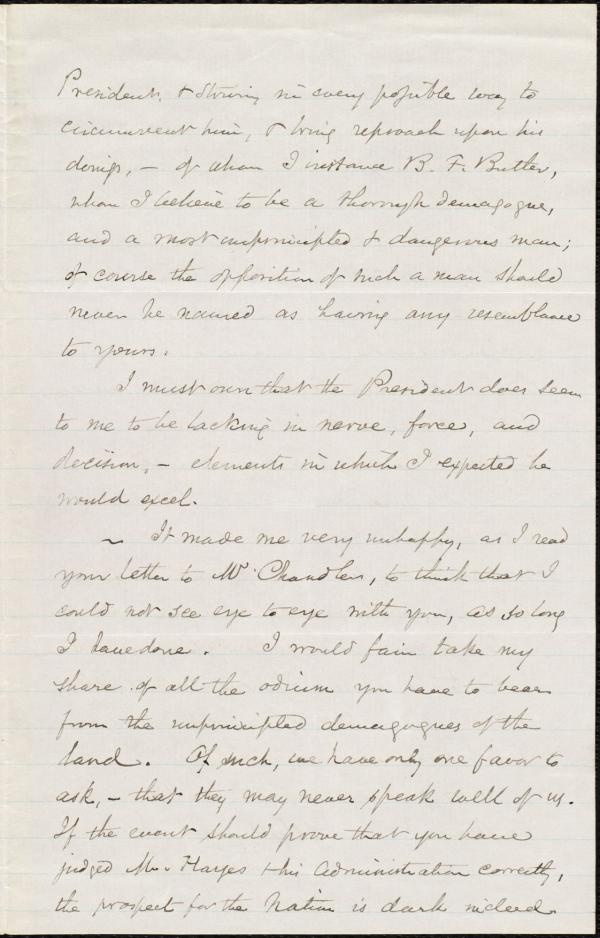 President, & striving in every possible way to
circumvent him, & bring reproach upon his
doings, — of whom I instance B. F. Butler,
whom I believe to be a thorough demagogue,
and a most unprincipled & dangerous man;
of course the opposition of such a man should
never be named as having any resemblance
to yours.
I must own that the President does seem
to me to be lacking in nerve, force, and
decision, — elements in which I expected he
would excel.
~ It made me very unhappy, as I read
your letter to Mr. Chandler, to think that I
could not see eye to eye with you, as so long
I have done. I would fain take my
share of all the odium you have to bear
from the unprincipled demagogues of the
land. Of such, we have only one favor to
ask, — that they may never speak well of us.
If the event should prove that you have
judged Mr. Hayes & his Administration correctly,
the prospect for the Nation is dark indeed.